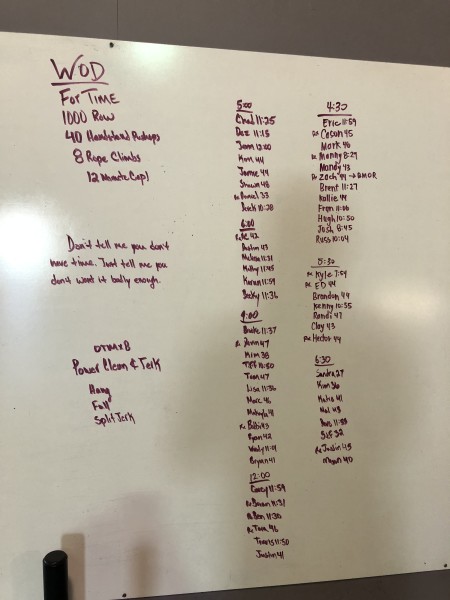 WOD
For TIME
1000 Row
40 Handstand Pushups
8 Rope Climbs
12 Minute Cap!
Don't tell me you don't
have time. Just tell me you
don't want it badly enough.
OTMx8
Power Clean & Jerk
Hang
Full
Split Jerk
5:00
Chad 11:25
Dax 11:15
Jann 12:00
Kim 44
Jamie 44
Shawn 48
Rx Daniel 33
Derek 10:28
6:00
42
Austin 43
Melissa 11:31
Molly 11:45
Karen 11:59
Becky 11:36
9:00
Brooke 11:37
Rx Jenn 47
Kim 38
Tiff 10:50
Tom 47
Lisa 11:36
Marc 46
Makayla 41
Rx Bobbi 43
Ryan 42
Wendy 11:01
Bryan 41
12:00
Casey 11:59
Rx 11:31
Rx Ben 11:30
Rx Tara 46
Travis 11:50
Justin 41
4:30
Eric 11:59
Rx Cason 45
Mark 46
Rx Manny 8:29
Mandy 43
Rx Zach 44
Brent 11:27
Kallie 44
Fran 11:00
Hugh 10:50
Josh 8:45
Russ 10:04
5:30
Rx Kyle 7:59
Rx ED 44
Brandon 44
Kenny 10:35
Randi 47
Clay 43
Rx Hector 44
6:30
Sandra 27
Kim 36
Katie 41
Mel 43
Dave 11:55
32
Rx Justin 45
Megan 40